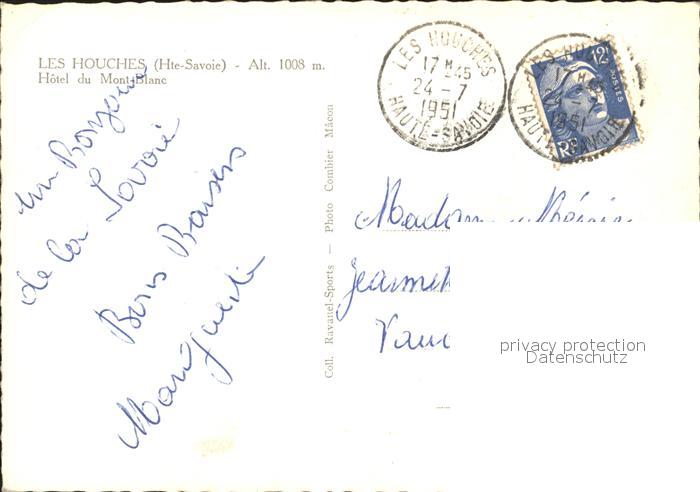 LES HOUCHES (Hte-Savoie) - Alt. 1008 m.
Hôtel du Mont-Blanc
Un Bonjour
de la Savoie
Bons Baisers
Marguerite
Coll. Ravanel-Sports — Photo Combier Mâcon
LES HOUCHES
17 H 45
24 - 7
1951
HAUTE-SAVOIE
LES HOU
17 H 45
- 7
1951
HAUTE-SAVOIE
12F
POSTES
RF
Madame
privacy protection
Datenschutz